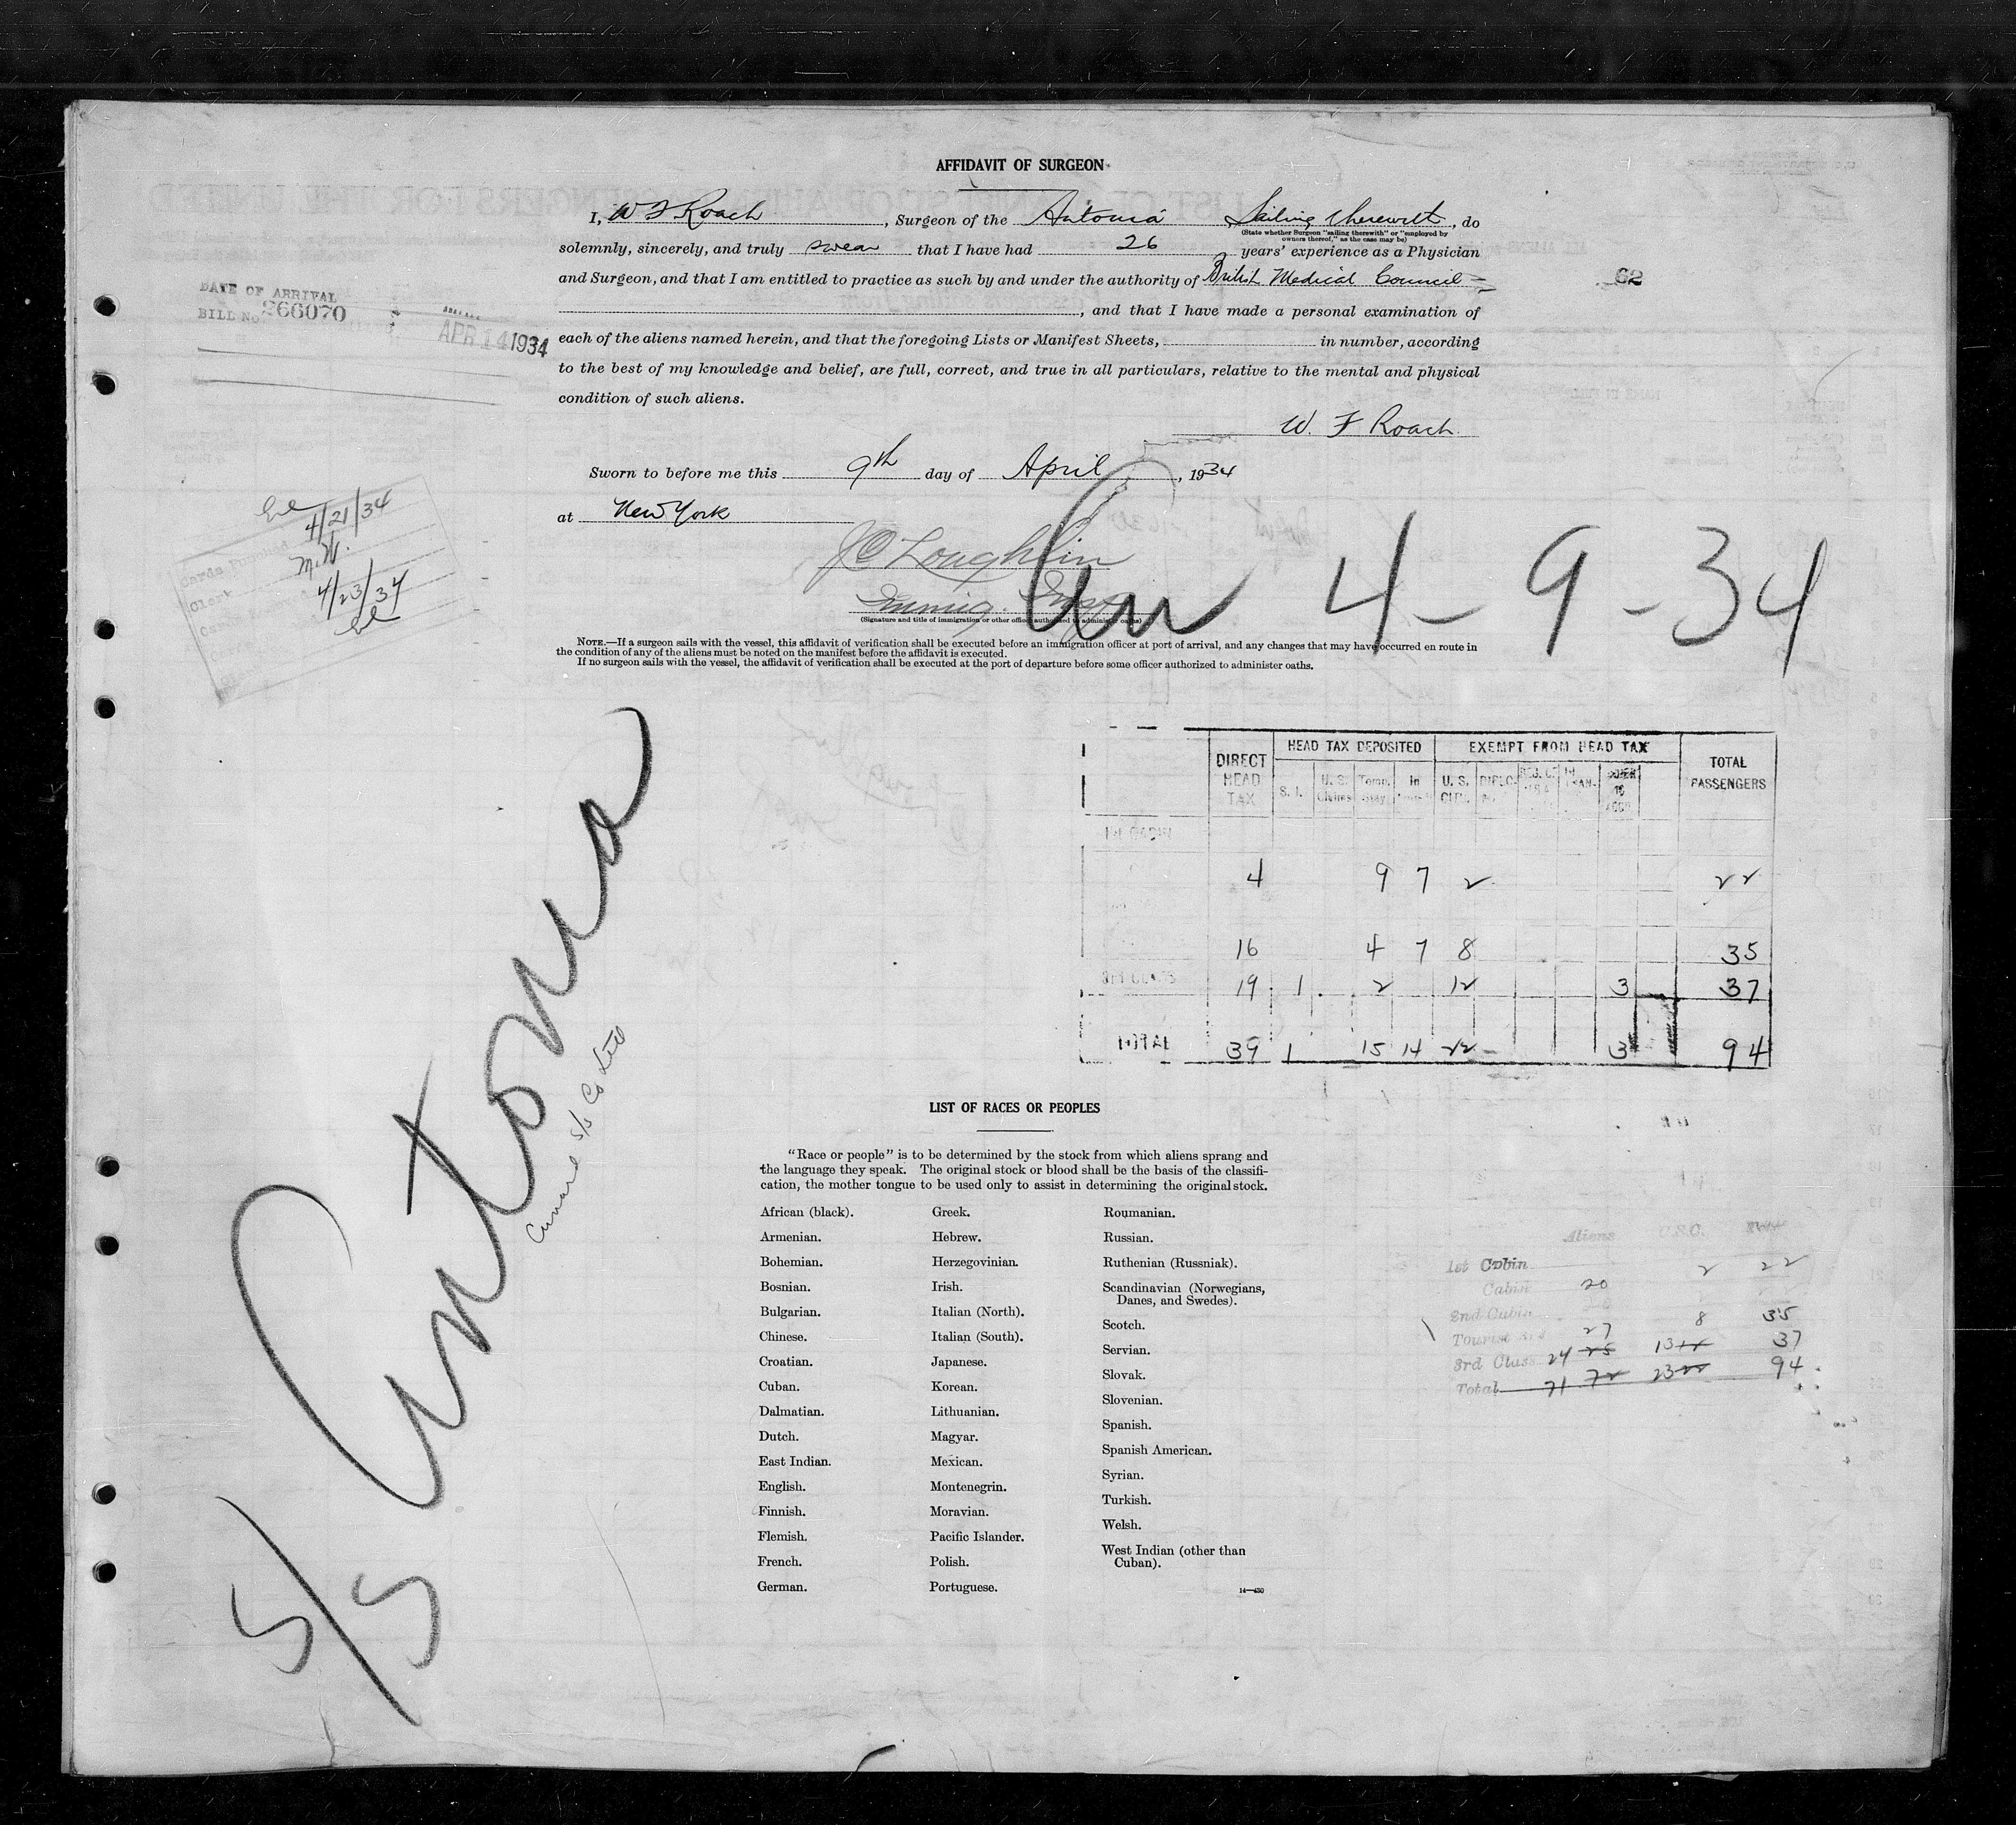 AFFIDAVIT OF SURGEON
I, W F Roach, Surgeon of the Antonia, Sailing therewith, do
(State whether Surgeon "sailing therewith" or "employed by
owners thereof," as the case may be)
solemnly, sincerely, and truly swear that I have had 26 years' experience as a Physician
and Surgeon, and that I am entitled to practice as such by and under the authority of British Medical Council
, and that I have made a personal examination of
each of the aliens named herein, and that the foregoing Lists or Manifest Sheets, in number, according
to the best of my knowledge and belief, are full, correct, and true in all particulars, relative to the mental and physical
condition of such aliens.
W. F Roach
Sworn to before me this 9th day of April, 1934
at New York
J O'Loughlin
Immig. Insp.
(Signature and title of immigration or other officer authorized to administer oaths)
NOTE.—If a surgeon sails with the vessel, this affidavit of verification shall be executed before an immigration officer at port of arrival, and any changes that may have occurred en route in
the condition of any of the aliens must be noted on the manifest before the affidavit is executed.
If no surgeon sails with the vessel, the affidavit of verification shall be executed at the port of departure before some officer authorized to administer oaths.
62
DATE OF ARRIVAL
BILL No. 266070
APR 14 1934
4/21/34
M.W.
4/23/34
Cards Punched
Clerk
4-9-34
S/S Antonia
Cunard S/S Co Ltd
DIRECT HEAD TAX
HEAD TAX DEPOSITED
EXEMPT FROM HEAD TAX
TOTAL PASSENGERS
S. I.
U. S. Citizens
Temp. Stay
In
U. S. CITZ.
DIPLO.
UNDER 16 ACCO
1st CABIN
4 9 7 2 22
16 4 7 8 35
3rd CLASS 19 1 2 12 3 37
TOTAL 39 1 15 14 22 3 94
LIST OF RACES OR PEOPLES
"Race or people" is to be determined by the stock from which aliens sprang and
the language they speak. The original stock or blood shall be the basis of the classifi-
cation, the mother tongue to be used only to assist in determining the original stock.
African (black).
Armenian.
Bohemian.
Bosnian.
Bulgarian.
Chinese.
Croatian.
Cuban.
Dalmatian.
Dutch.
East Indian.
English.
Finnish.
Flemish.
French.
German.
Greek.
Hebrew.
Herzegovinian.
Irish.
Italian (North).
Italian (South).
Japanese.
Korean.
Lithuanian.
Magyar.
Mexican.
Montenegrin.
Moravian.
Pacific Islander.
Polish.
Portuguese.
Roumanian.
Russian.
Ruthenian (Russniak).
Scandinavian (Norwegians,
Danes, and Swedes).
Scotch.
Servian.
Slovak.
Slovenian.
Spanish.
Spanish American.
Syrian.
Turkish.
Welsh.
West Indian (other than
Cuban).
14—430
Aliens U.S.C.
1st Cabin 2 22
Cabin 20
2nd Cabin 8 35
Tourist 27
3rd Class 24 25 13 37
Total 71 72 23 22 94